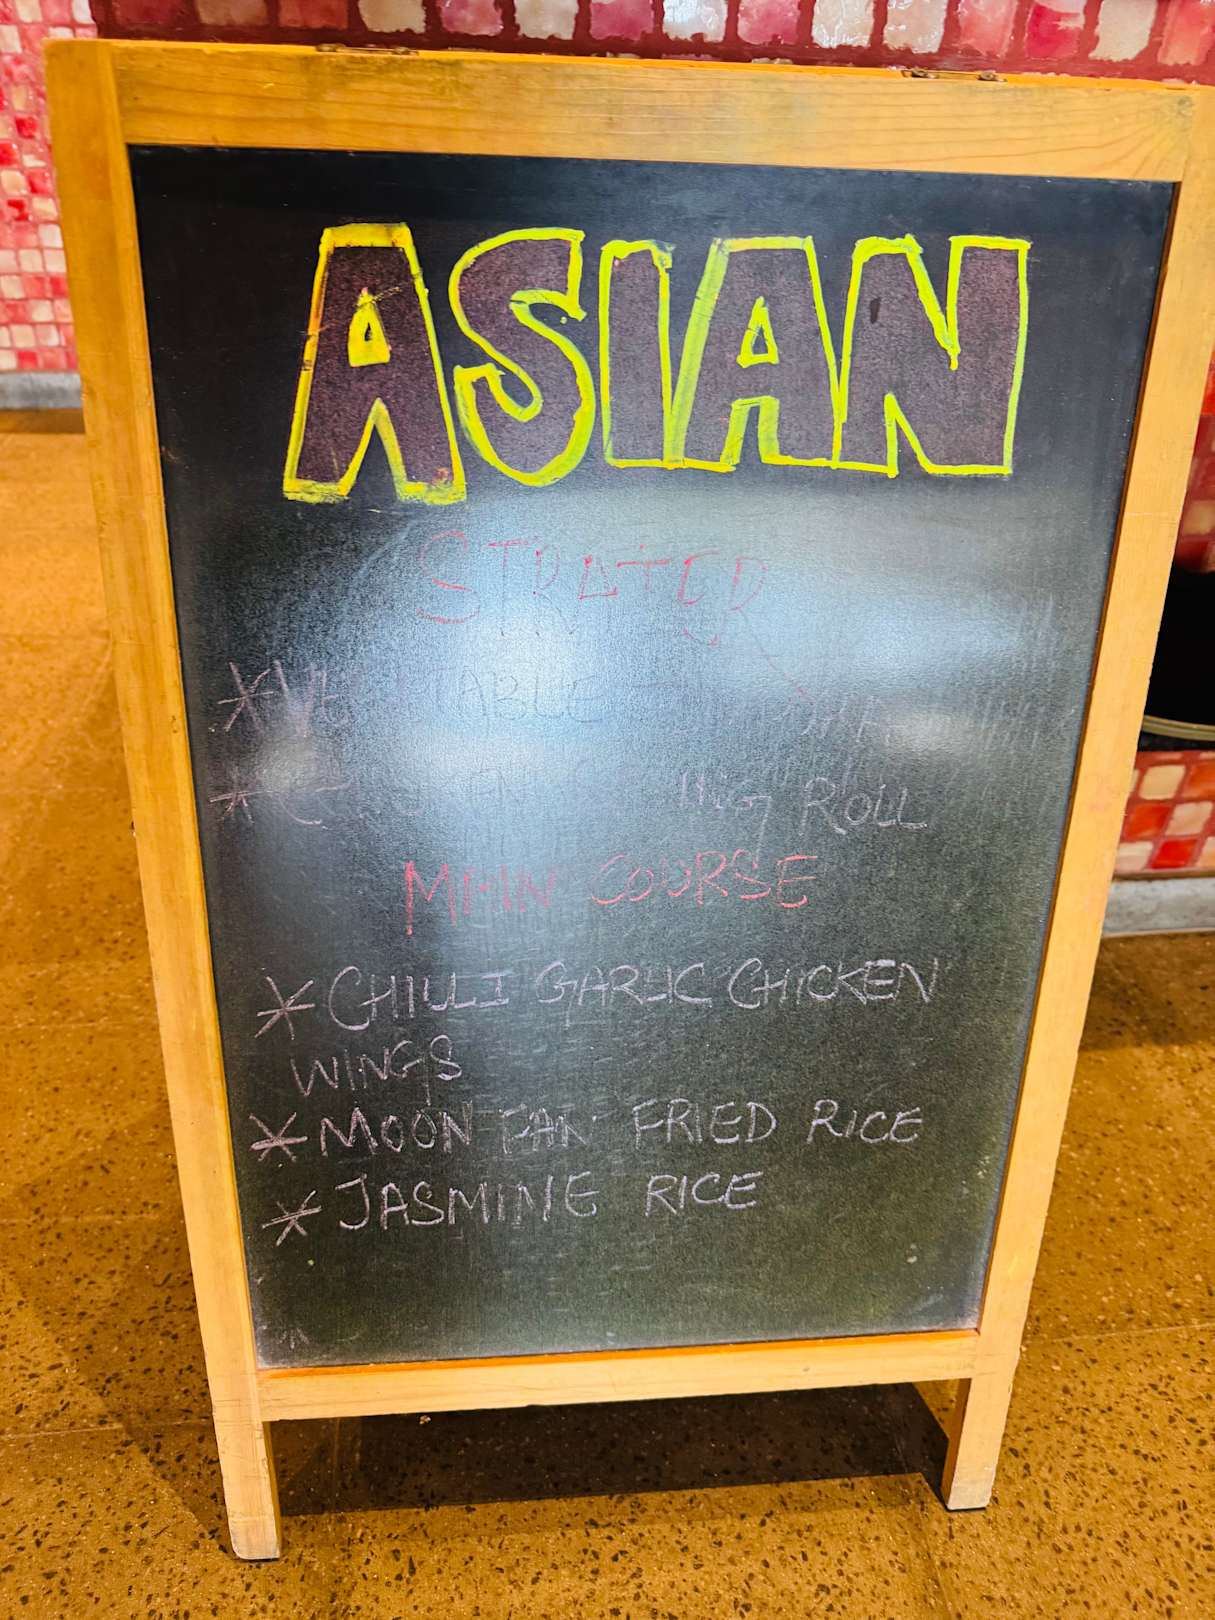 ASIAN
STRATED
* VEGETABLE
* ROLL
MAIN COURSE
* CHILLI GARLIC CHICKEN
WINGS
* MOON FAN FRIED RICE
* JASMINE RICE